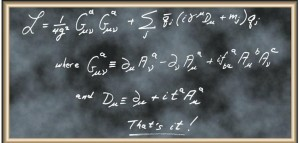 ℒ = 1/4g² G^a_μν G^a_μν + Σ_j q̄_j (iγ^μ D_μ + m_j) q_j
where G^a_μν ≡ ∂_μ A^a_ν − ∂_ν A^a_μ + i f^a_bc A^b_μ A^c_ν
and D_μ ≡ ∂_μ + i t^a A^a_μ
That's it!